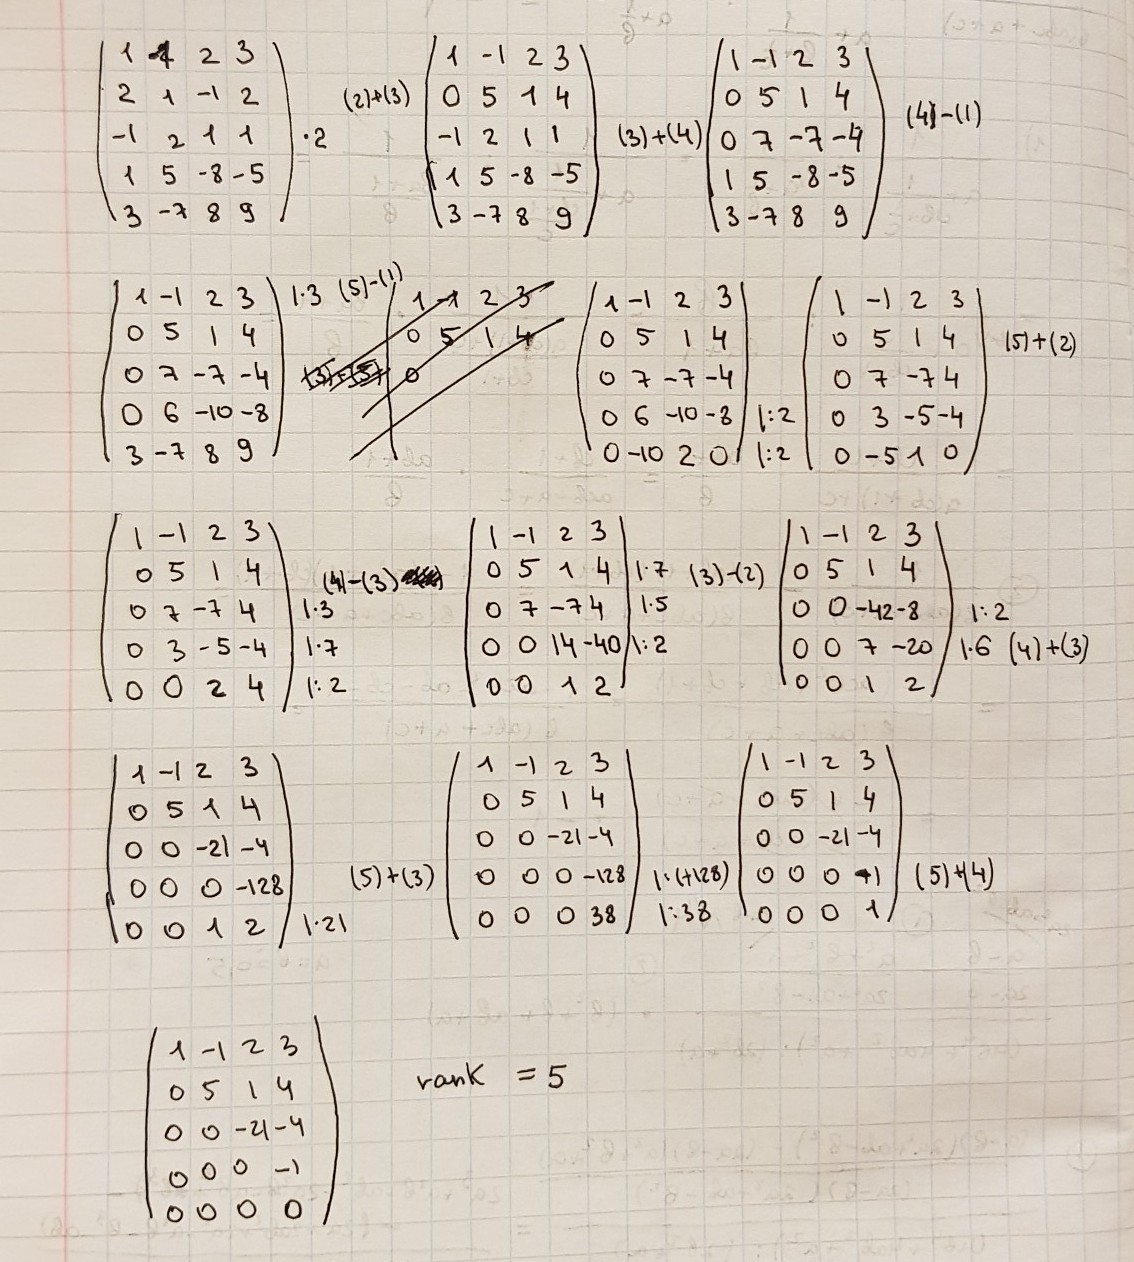 1 -1 2 3
2 1 -1 2
-1 2 1 1 ·2
1 5 -8 -5
3 -7 8 9
(2)+(3)
1 -1 2 3
0 5 1 4
-1 2 1 1
1 5 -8 -5
3 -7 8 9
(3)+(4)
1 -1 2 3
0 5 1 4
0 7 -7 -4
1 5 -8 -5
3 -7 8 9
(4)-(1)
1 -1 2 3 |·3 (5)-(1)
0 5 1 4
0 7 -7 -4
0 6 -10 -8
3 -7 8 9
1 -1 2 3
0 5 1 4
0
1 -1 2 3
0 5 1 4
0 7 -7 -4
0 6 -10 -8 |:2
0 -10 2 0 |:2
1 -1 2 3
0 5 1 4 (5)+(2)
0 7 -7 4
0 3 -5 -4
0 -5 1 0
1 -1 2 3
0 5 1 4 (4)-(3)
0 7 -7 4 |·3
0 3 -5 -4 |·7
0 0 2 4 |:2
1 -1 2 3
0 5 1 4 |·7 (3)-(2)
0 7 -7 4 |·5
0 0 14 -40 |:2
0 0 1 2
1 -1 2 3
0 5 1 4
0 0 -42 -8 |:2
0 0 7 -20 |·6 (4)+(3)
0 0 1 2
1 -1 2 3
0 5 1 4
0 0 -21 -4
0 0 0 -128
0 0 1 2 |·21
(5)+(3)
1 -1 2 3
0 5 1 4
0 0 -21 -4
0 0 0 -128 |:(+128)
0 0 0 38 |:38
1 -1 2 3
0 5 1 4
0 0 -21 -4
0 0 0 -1 (5)+(4)
0 0 0 1
1 -1 2 3
0 5 1 4
0 0 -21 -4
0 0 0 -1
0 0 0 0
rank = 5